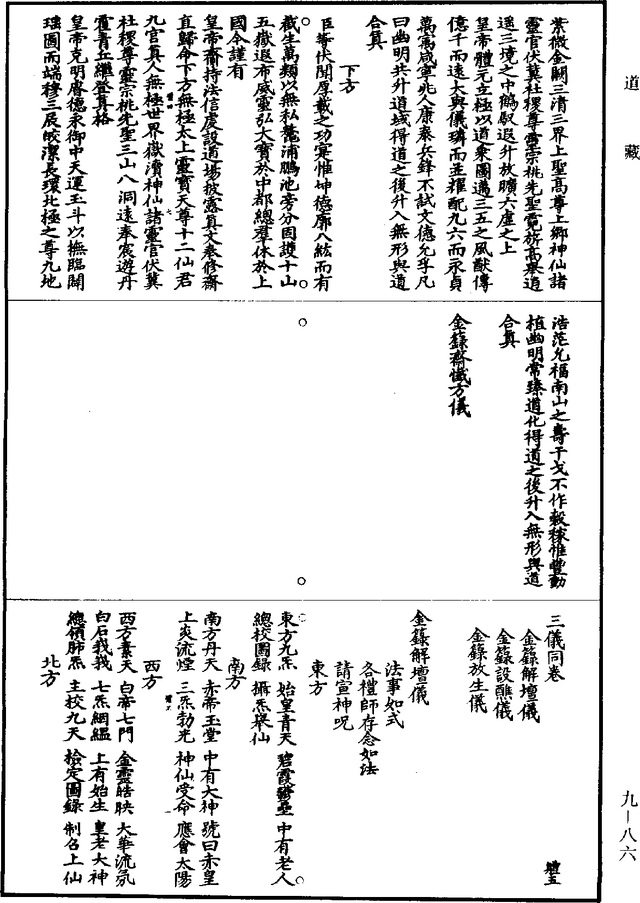 道藏
紫微金闕三清三界上聖高尊上鄉神仙諸
靈官伏冀社稷尊靈宗祧先聖霓旌高舉逍
遙三境之中鶴馭遐升放曠六虛之上
皇帝體元立極以道乘圖邁三五之風猷傳
億千而遠大與儀璘而並耀配九六而永貞
萬寓咸寧兆人康泰兵鋒不試文德允孚凡
曰幽明共升道域得道之後升入無形與道
合真
下方
臣等伏聞厚載之功寔惟坤德廓八紘而有
截生萬類以無私麓浦鵬池旁分固護十山
五嶽遐布威靈弘大寶於中都總羣休於上
國今謹有
皇帝齋持法信虔設道場披露真文奉修齋
直歸命下方無極太上靈寶天尊十二仙君
九官真人無極世界嶽瀆神仙諸靈官伏冀
社稷尊靈宗祧先聖三山八洞遠奉宸遊丹
霄青丘繼登真格
皇帝克明睿德永御中天運玉斗以撫臨開
瑤圖而端穆三辰皎潔長環北極之尊九地
浩茫允福南山之壽干戈不作穀稼惟豐動
植幽明常臻道化得道之後升入無形與道
合真
金籙齋懺方儀
三儀同卷
金籙解壇儀
金籙設醮儀
金籙放生儀
金籙解壇儀
法事如式
各禮師存念如法
請宣神呪
東方
東方九炁 始皇青天 碧霞欝壘 中有老人
總校圖錄 攝炁舉仙
南方
南方丹天 赤帝玉堂 中有大神 號曰赤皇
上炎流煙 三炁勃光 神仙受命 應會太陽
西方
西方素天 白帝七門 金靈皓映 大華流氛
白石我我 七炁網緼 上有始生 皇老大神
總領肺炁 主校九天 檢定圖錄 制召上仙
北方
九－八六